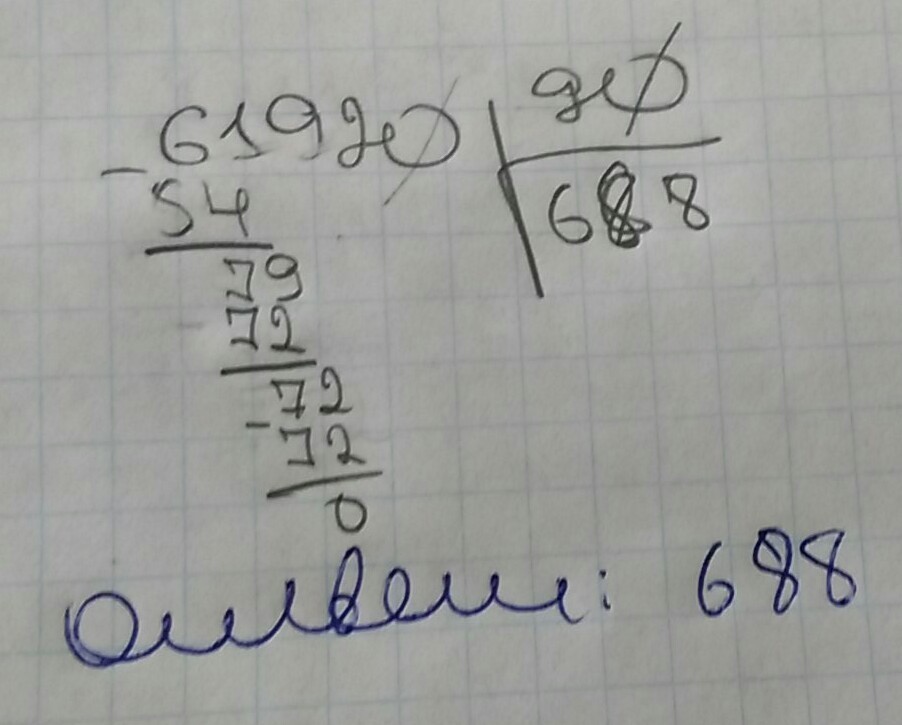 61920 | 90
- 54 | 688
79
72
- 72
72
0
Ответ: 688